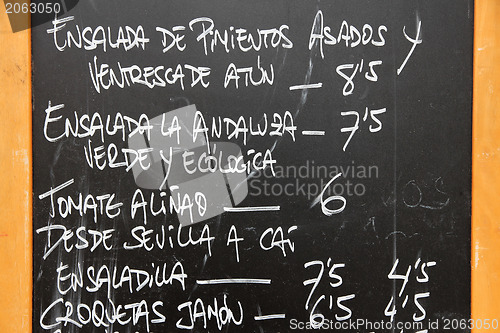 Ensalada de Pimientos Asados y
Ventresca de Atún — 8'5
Ensalada la Andaluza — 7'5
Verde y Ecólogica
Tomate Aliñao — 6
Desde Sevilla a Cai
Ensaladilla — 7'5 4'5
Croquetas Jamón — 6'5 4'5